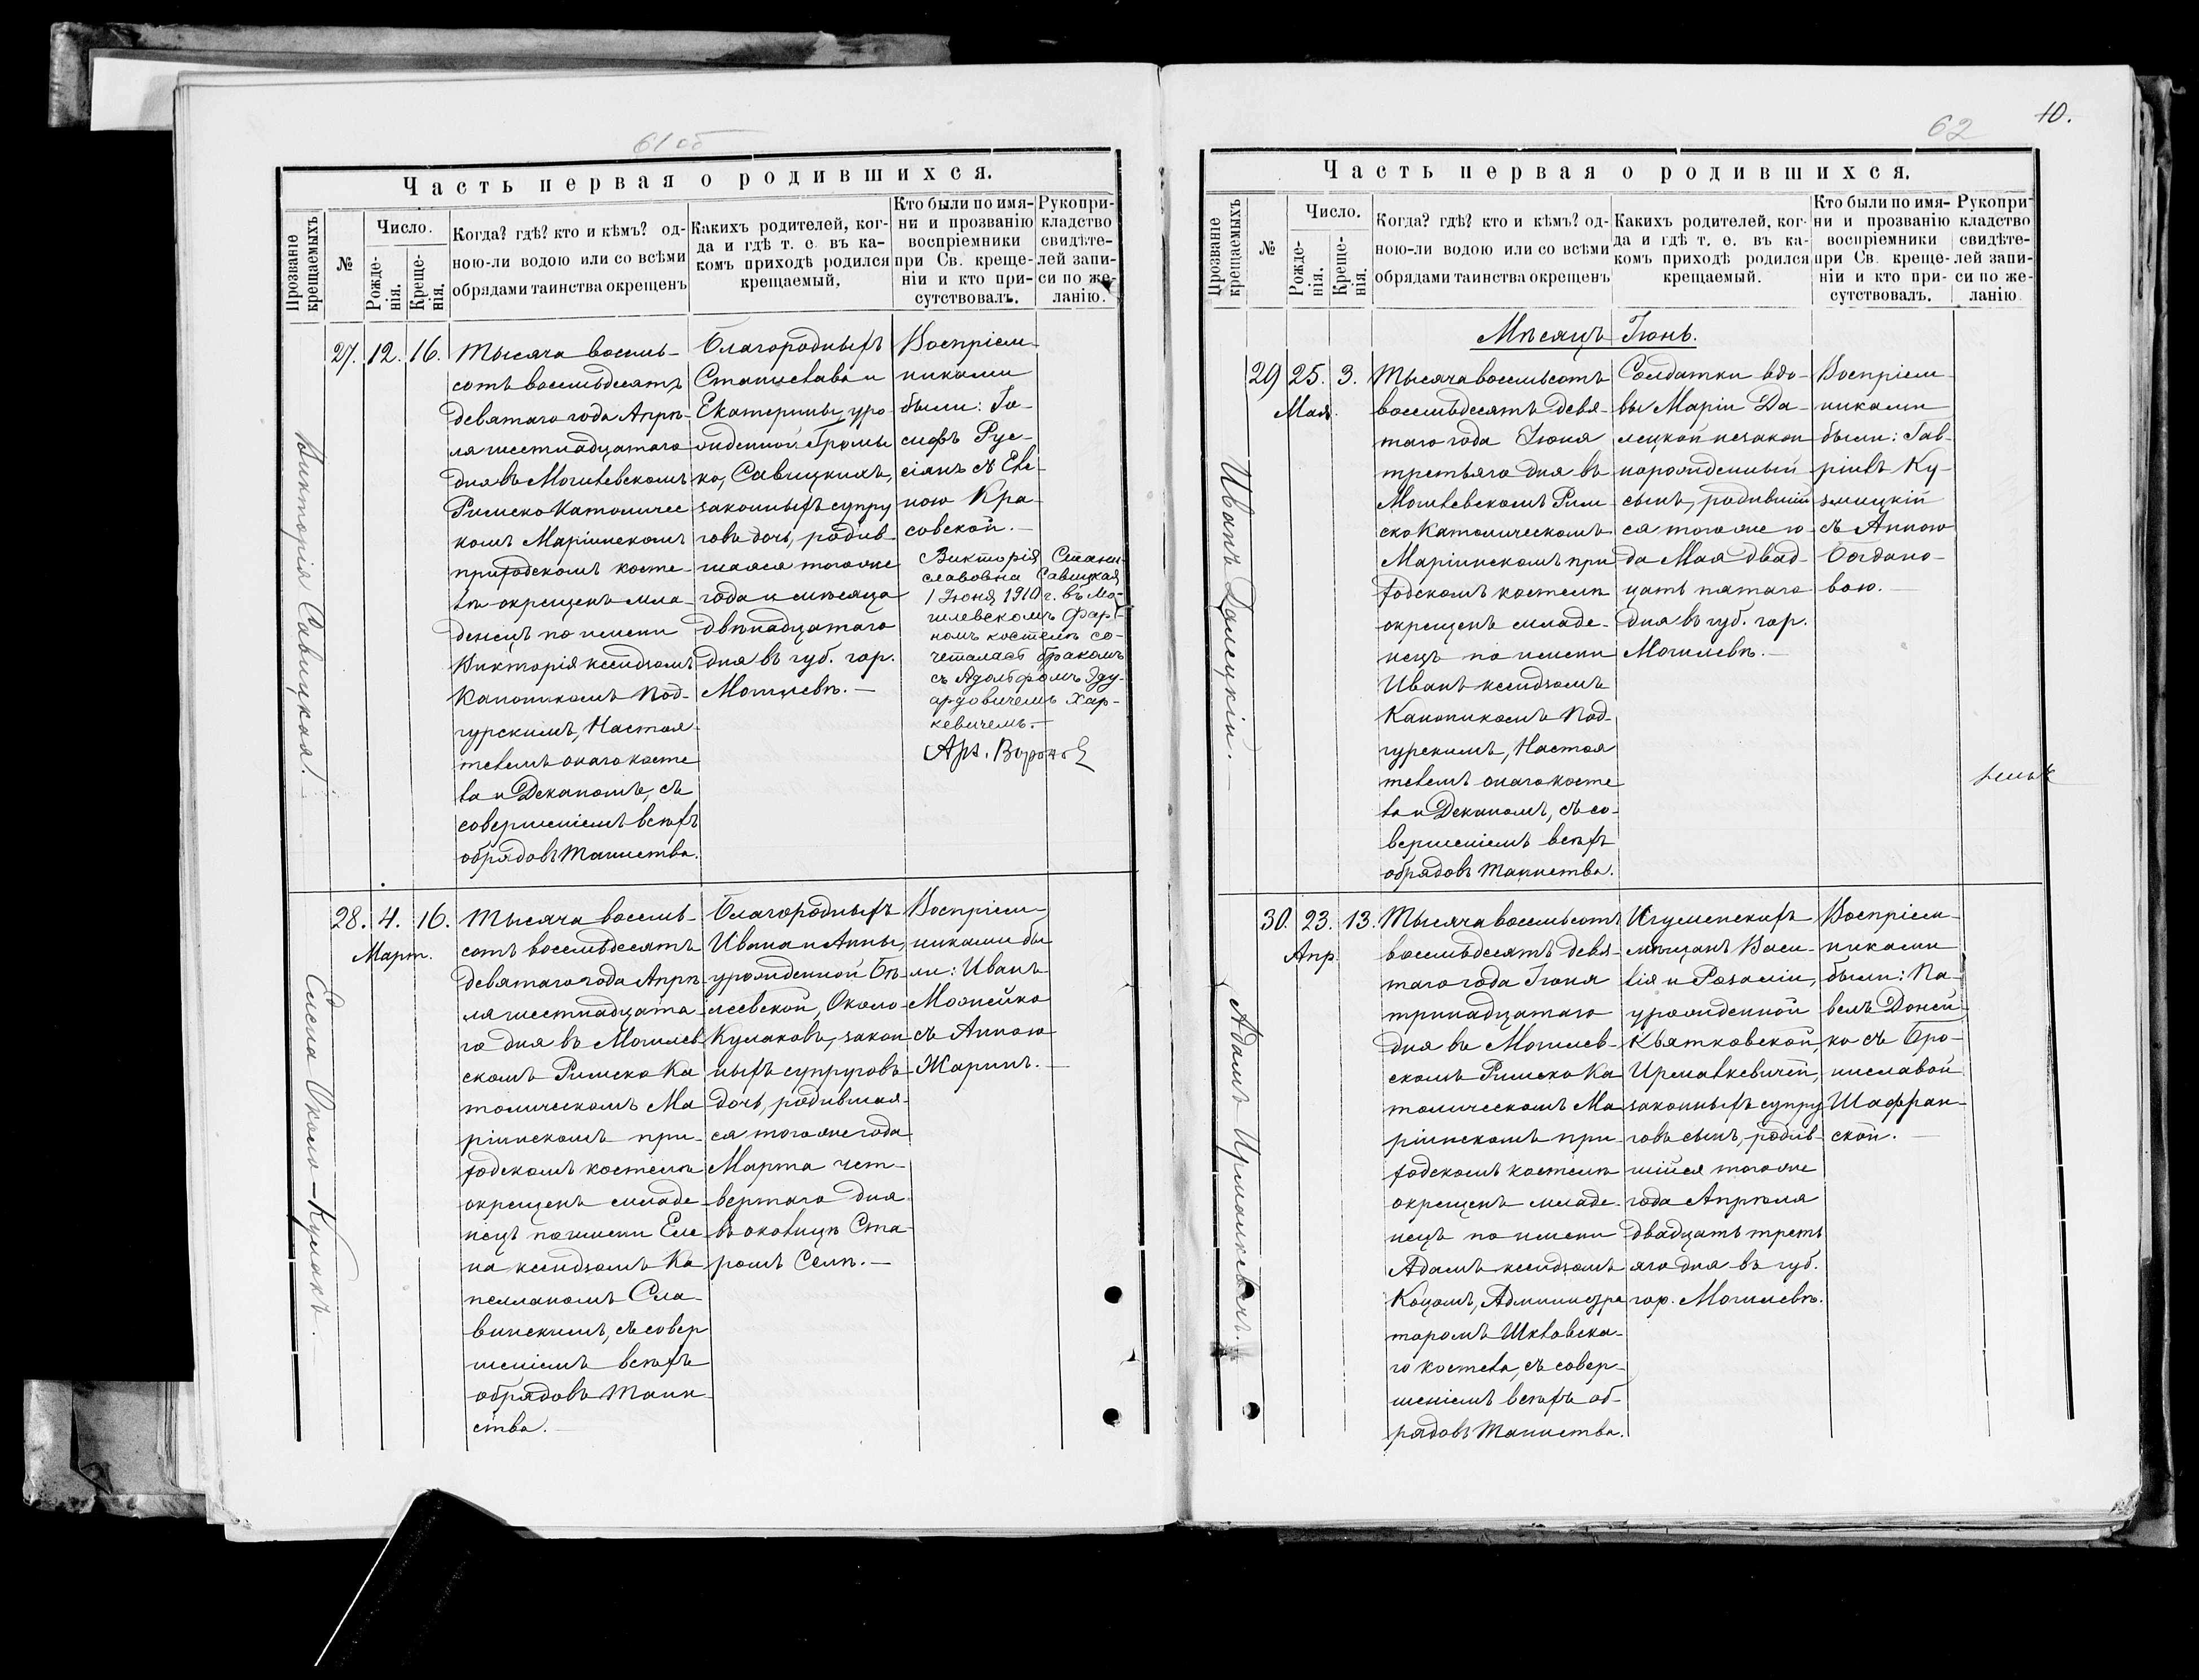 61 об
Часть первая о родившихся.
Прозваніе крещаемыхъ
№
Число.
Рожде-
нія.
Креще-
нія.
Когда? гдѣ? кто и кѣмъ? од-
ною-ли водою или со всѣми
обрядами таинства окрещенъ
Какихъ родителей, ког-
да и гдѣ т. е. въ ка-
комъ приходѣ родился
крещаемый,
Кто были по имя-
ни и прозванію
воспріемники
при Св. креще-
ніи и кто при-
сутствовалъ.
Рукопри-
кладство
свидѣте-
лей запи-
си по же-
ланію.
Викторія Савицкая.
27. 12. 16.
Тысяча восемь-
сотъ восемьдесятъ
девятаго года Апрѣ-
ля шестнадцатаго
дня въ Могилевскомъ
Римско Католичес
комъ Маріинскомъ
приходскомъ косте-
лѣ окрещенъ мла-
денецъ по имени
Викторія ксендзомъ
Каноникомъ Под-
гурскимъ, Настоя-
телемъ онаго косте
ла и Деканомъ, съ
совершеніемъ всѣхъ
обрядовъ Таинства.
Благородныхъ
Станислава и
Екатерины, уро-
жденной Громы
ко, Савицкихъ,
законныхъ супру
говъ дочь, родив-
шаяся тогоже
года и мѣсяца
двѣнадцатаго
дня въ губ. гор.
Могилевѣ.—
Воспріем-
никами
были: Іо-
сифъ Рус-
сіянъ съ Еле-
ною Кра-
совской.—
Викторія Стани-
славовна Савицкая
1 Іюня 1910 г. въ Мо-
гилевскомъ Фар-
номъ костелѣ со-
четалась бракомъ
съ Адольфомъ Эду-
ардовичемъ Хар-
кевичемъ.—
Елена Около-Кулакъ.
28. 4. 16.
Март.
Тысяча восемь-
сотъ восемьдесятъ
девятаго года Апрѣ-
ля шестнадцата
го дня въ Могилев
скомъ Римско Ка
толическомъ Ма
ріинскомъ при-
ходскомъ костелѣ
окрещенъ младе
нецъ по имени Еле
на ксендзомъ Ка
пелланомъ Сла-
винскимъ, съ совер
шеніемъ всѣхъ
обрядовъ Таин-
ства.
Благородныхъ
Ивана и Анны,
урожденной Бѣ
леевской, Около-
Кулаковъ, закон
ныхъ супруговъ
дочь, родившая-
ся того же года
Марта чет-
вертаго дня
въ околицѣ Ста-
ромъ Селѣ.—
Воспріем-
никами бы
ли: Иванъ
Можейко
съ Анною
Жаринъ.—
62
10.
Часть первая о родившихся.
Прозваніе крещаемыхъ
№
Число.
Рожде-
нія.
Креще-
нія.
Когда? гдѣ? кто и кѣмъ? од-
ною-ли водою или со всѣми
обрядами таинства окрещенъ
Какихъ родителей, ког-
да и гдѣ т. е. въ ка-
комъ приходѣ родился
крещаемый.
Кто были по имя-
ни и прозванію
воспріемники
при Св. креще-
ніи и кто при-
сутствовалъ.
Рукопри-
кладство
свидѣте-
лей запи-
си по же-
ланію
Мѣсяцъ Іюнь.
Иванъ Далецкій.
29 25. 3.
Мая.
Тысяча восемьсотъ
восемьдесятъ девя-
таго года Іюня
третьяго дня въ
Могилевскомъ Рим
ско Католическомъ
Маріинскомъ при
ходскомъ костелѣ
окрещенъ младе-
нецъ по имени
Иванъ ксендзомъ
Каноникомъ Под-
гурскимъ, Настоя
телемъ онаго косте
ла и Деканомъ, съ со-
вершеніемъ всѣхъ
обрядовъ Таинства.
Солдатки вдо-
вы Маріи Да-
лецкой незакон
норожденный
сынъ, родивший
ся того же го
да Мая двад-
цать пятаго
дня въ губ. гор.
Могилевѣ.—
Воспріем-
никами
были: Гав-
ріилъ Ку-
змицкій
съ Анною
Богдано-
вою.—
Адамъ Ирмалкевичъ.
30. 23. 13.
Апр.
Тысяча восемьсотъ
восемьдесятъ девя-
таго года Іюня
тринадцатаго
дня въ Могилев-
скомъ Римско Ка
толическомъ Ма
ріинскомъ при-
ходскомъ костелѣ
окрещенъ младе-
нецъ по имени
Адамъ ксендзомъ
Коцомъ, Администра
торомъ Шкловска-
го костела, съ совер-
шеніемъ всѣхъ об-
рядовъ Таинства.
Игуменскихъ
мѣщанъ Васи-
лія и Розаліи,
урожденной
Квятковской,
Ирмалкевичей,
законныхъ супру
говъ сынъ, родив-
шійся тогоже
года Апрѣля
двадцать треть
яго дня въ губ.
гор. Могилевѣ.
Воспріем-
никами
были: Па-
велъ Доней
ко съ Бро-
ниславой
Шафран-
ской.—